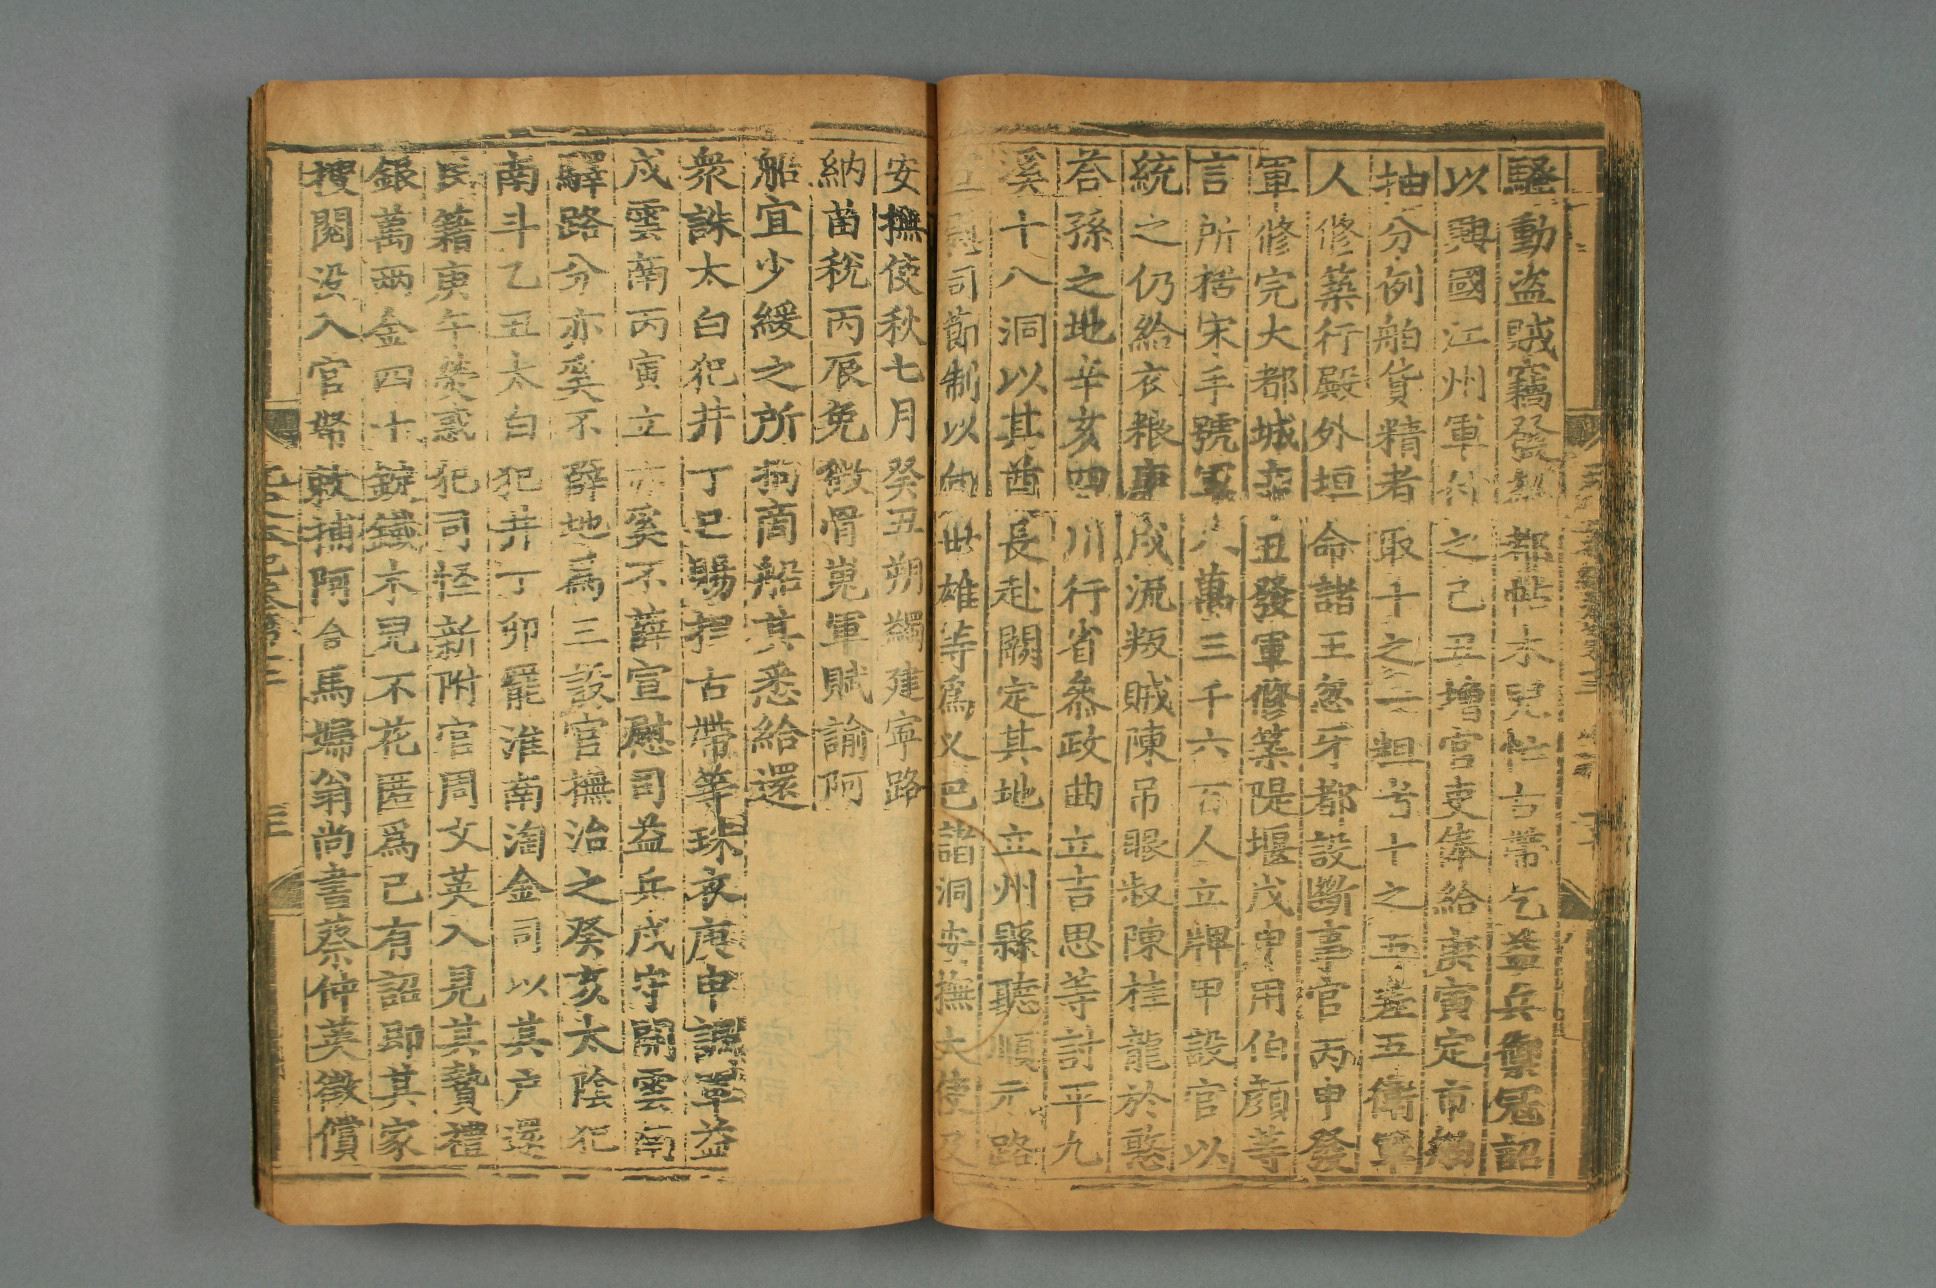 騷動盗賊竊發都帖木兒忙古帶乞益兵禦冦詔
以興國江州軍付之己丑增官吏俸給庚寅定市舶
抽分例舶貨精者取十之一粗者十之五差五衛軍
人修築行殿外垣命諸王忽牙都設斷事官丙申發
軍修完大都城辛丑發軍修築隄堰戊申用伯顔等
言所括宋手號軍八萬三千六百人立牌甲設官以
統之仍給衣粮庚戌流叛賊陳吊眼叔陳桂龍於憨
荅孫之地辛亥四川行省叅政曲立吉思等討平九
溪十八洞以其酋長赴闕定其地立州縣聽順元路
宣慰司節制以向世雄等爲又巴諸洞安撫大使及
安撫使秋七月癸丑朔蠲建寧路
納苗稅丙辰免徵骨嵬軍賦諭阿
船宜少緩之所拘商船其悉給還
衆誅太白犯井丁巳賜揑古帶等珠衣庚申調軍益
戍雲南丙寅立亦奚不薛宣慰司益兵戍守開雲南
驛路分亦奚不薛地爲三設官撫治之癸亥太陰犯
南斗乙丑太白犯井丁卯罷淮南淘金司以其户還
民籍庚午熒惑犯司怪新附官周文英入見其贄禮
銀萬兩金四十錠鐵木兒不花匿爲己有詔即其家
搜閱没入官帑敕捕阿合馬婦翁尚書蔡仲英徵償
元史本紀卷第十二
三